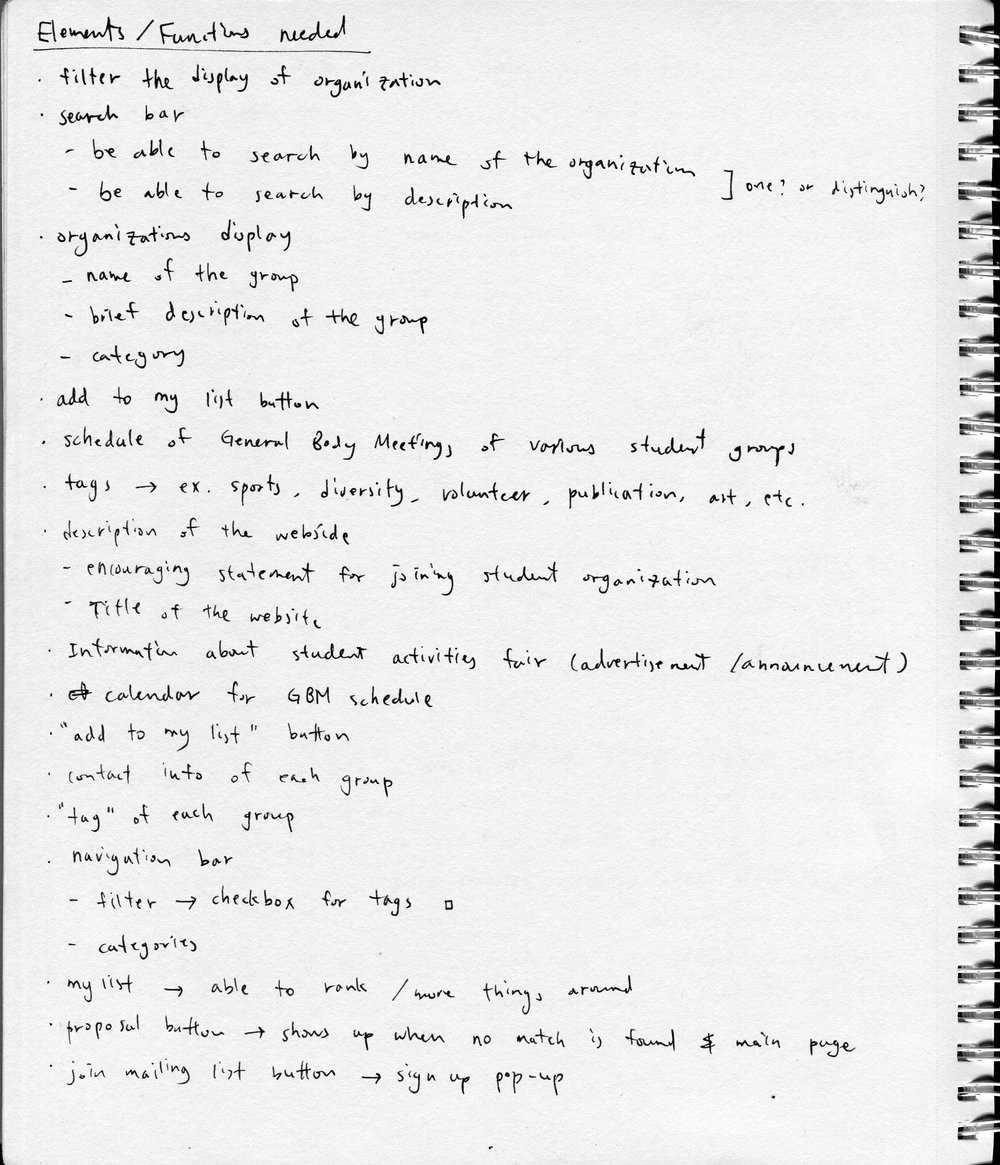 Elements / Functions needed
· filter the display of organization
· search bar
- be able to search by name of the organization
- be able to search by description ] one? or distinguish?
· organizations display
- name of the group
- brief description of the group
- category
· add to my list button
· schedule of General Body Meetings of various student groups
· tags → ex. sports, diversity, volunteer, publication, art, etc.
· description of the webside
- encouraging statement for joining student organization
- Title of the website
· Information about student activities fair (advertisement / announcement)
· calendar for GBM schedule
· "add to my list" button
· contact info of each group
· "tag" of each group
· navigation bar
- filter → checkbox for tags □
- categories
· my list → able to rank / move things around
· proposal button → shows up when no match is found & main page
· join mailing list button → sign up pop-up